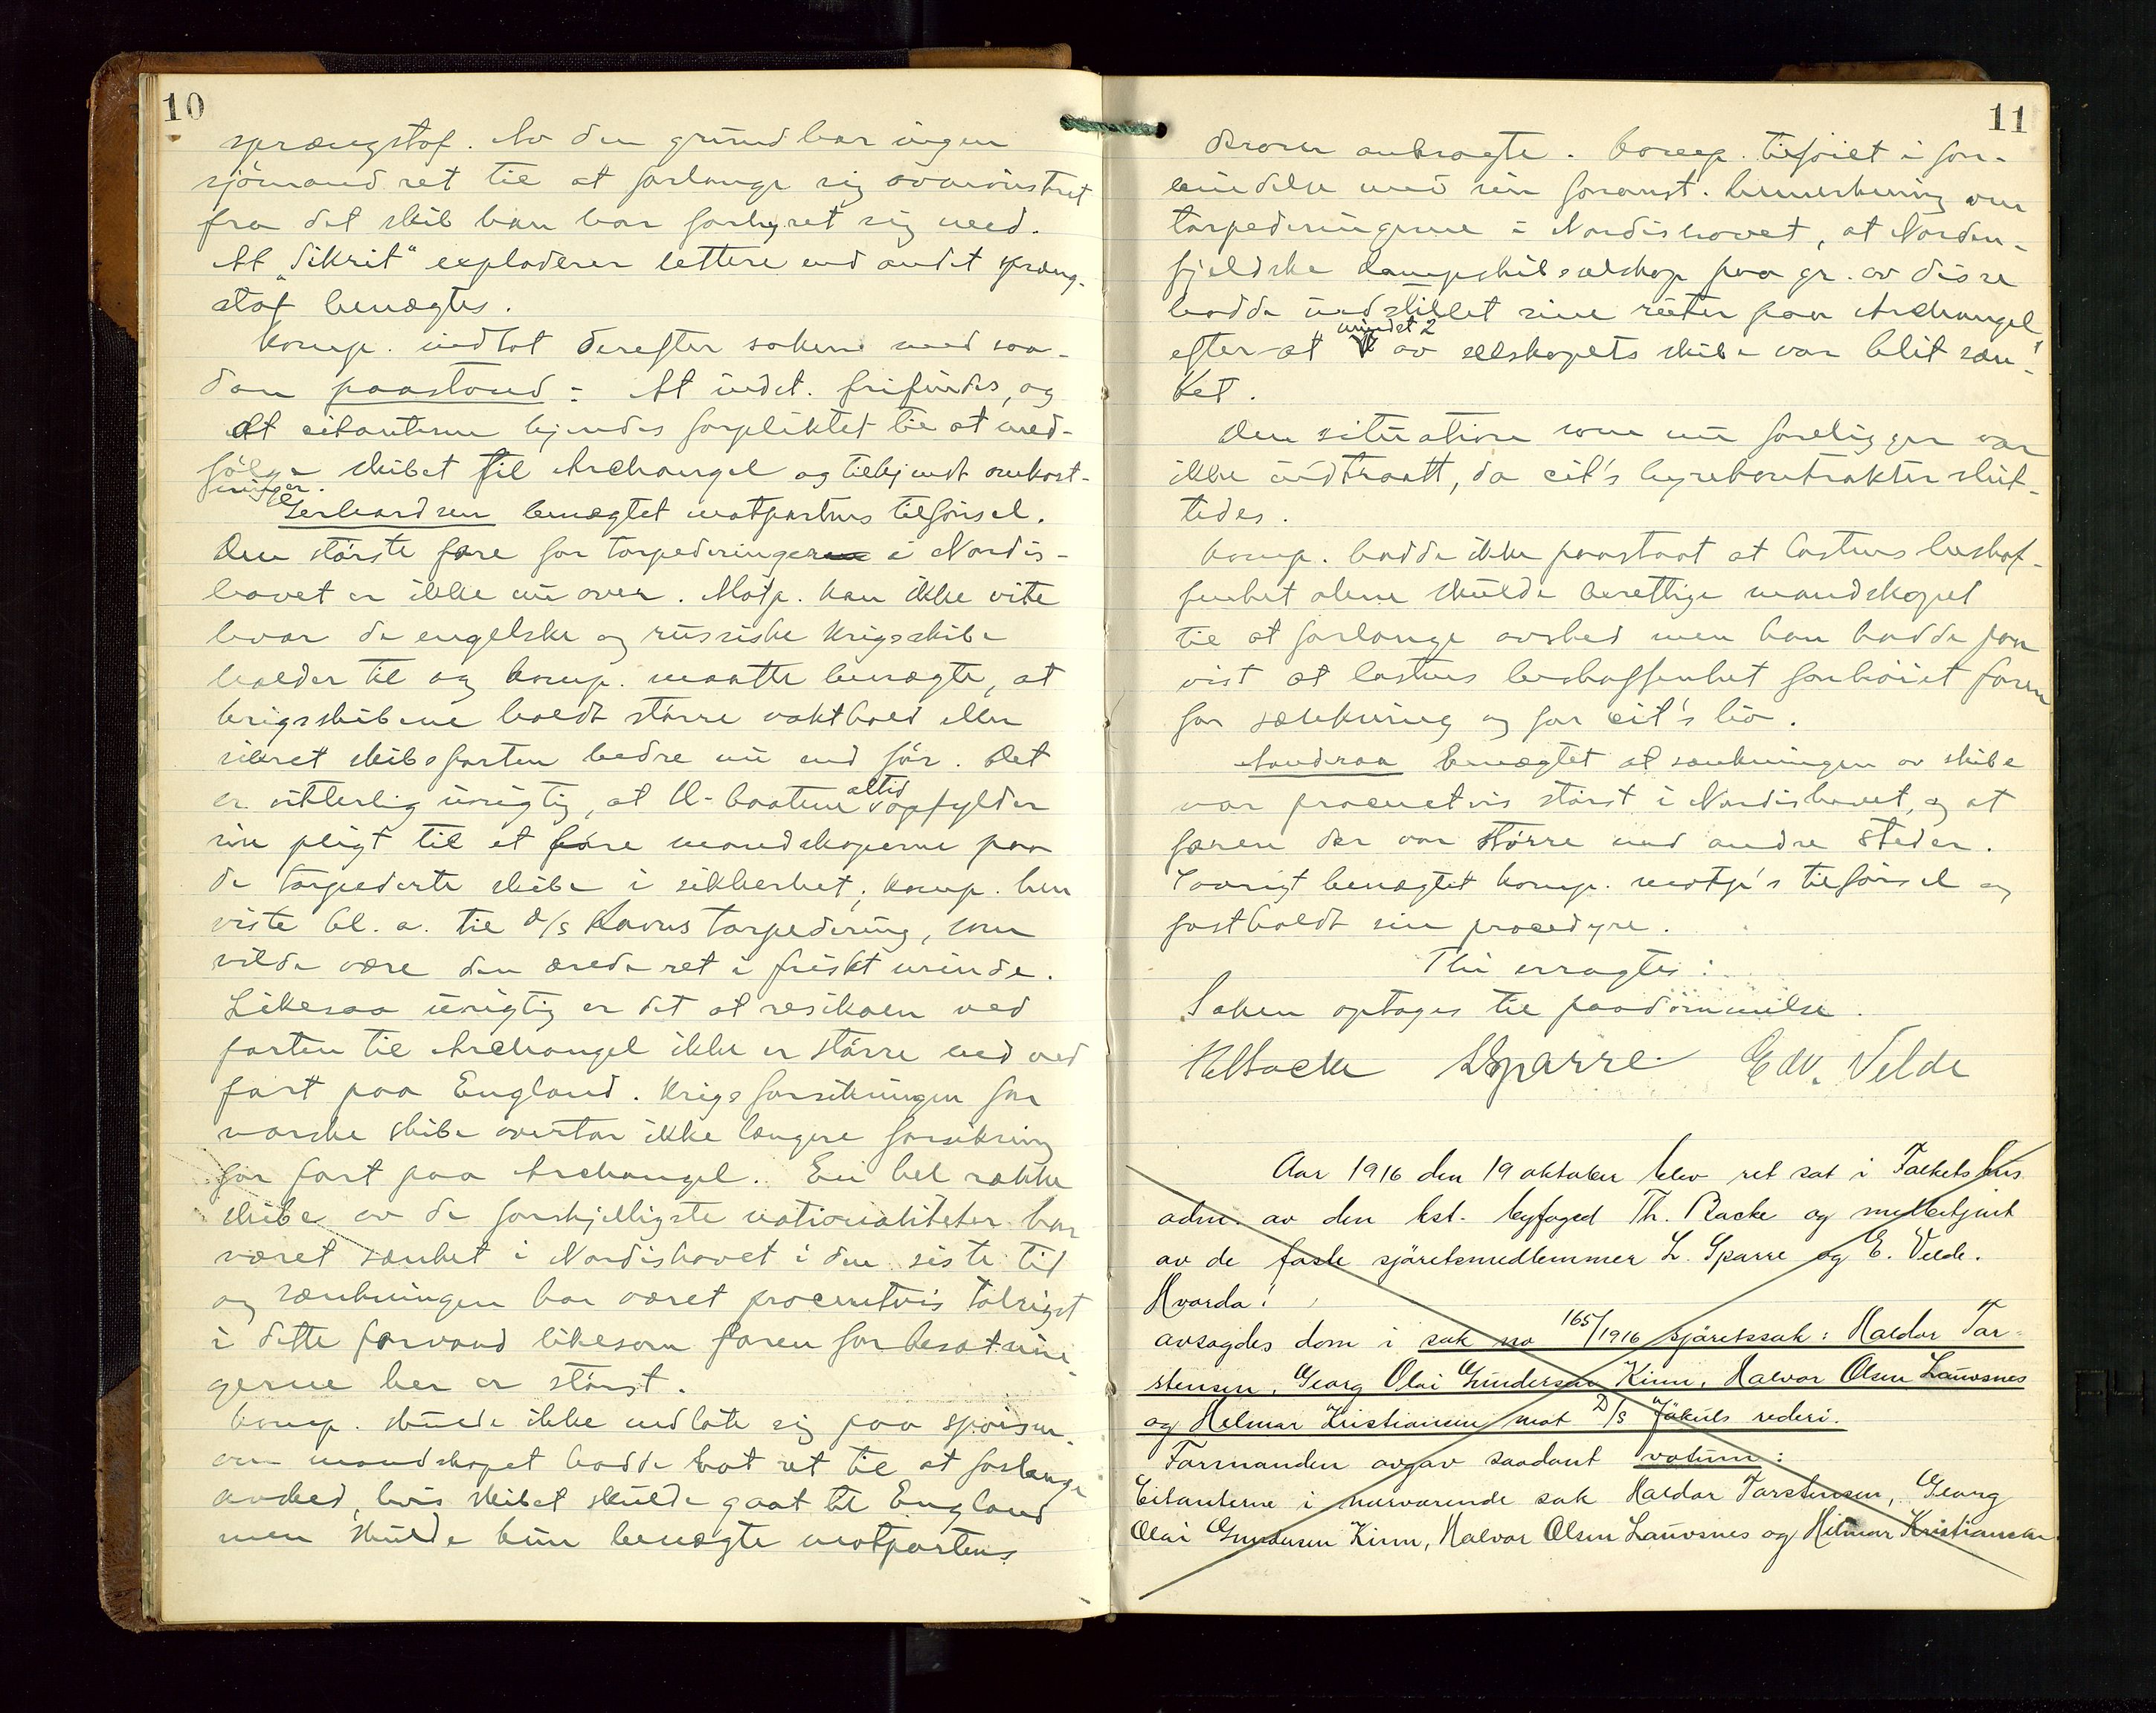 10
sprængstof. Av den grund har ingen
sjömand ret til at forlange sig avmönstret
fra det skib han har forhyret sig med.
At "Dikrit" exploderer lettere end andet spræng-
stof benægtes.
Komp. indlot derefter saken med saa-
dan paastand: At indst. frifindes, og
at citanterne kjendes forpliktet til at med-
fölge skibet til Archangel og tilkjendt omkost-
ninger.
Gerhardsen benægtet motpartens tilförsel.
Den störste fare for torpederinger i Nordis-
havet er ikke nu over. Motp. kan ikke vite
hvor de engelske og russiske krigsskibe
holder til og komp. maatte benægte, at
krigsskibene holdt större vakthold eller
sikret skibsfarten bedre nu end för. Det
er vitterlig urigtig, at U-baatene altid opfylder
sin pligt til at före mandskaperne paa
de torpederte skibe i sikkerhet; komp. hen
viste bl. a. til d/s Ravns torpedering, som
vilde være den ærede ret i friskt minde.
Likesaa urigtig er det at resikoen ved
farten til Archangel ikke er större end ved
fart paa England. Krigsforsikringen for
norske skibe overtar ikke længere forsikring
for fart paa Archangel. En hel række
skibe av de forskjelligste nationaliteter har
været sænket i Nordishavet i den siste tid
og sænkningen har været procentvis talrigst
i dette farvand likesom faren for besætnin
gerne her er störst.
Komp. skulde ikke indlate sig paa spörsm.
om mandskapet hadde hat ret til at forlange
avsked, hvis skibet skulde gaat til England
men skulde kun benægte motpartens
11
derom anbragte. Komp. tilföiet i for-
bindelse med sin foranst. bemerkning om
torpederingerne i Nordishavet, at Norden-
fjeldske dampskibsselskap paa gr. av disse
hadde indstillet sine ruter paa Archangel
efter at mindst 2 av selskapets skibe var blit sæn-
ket.
Den situation som nu foreligger var
ikke indtraatt, da cit's hyrekontrakter slut-
tedes.
Komp. hadde ikke paastaat at lastens beskaf-
fenhet alene skulde berettige mandskapet
til at forlange avsked men han hadde paa
vist at lastens beskaffenhet forhöiet faren
for sænkning og for cit's liv.
benægtet at sænkningen av skibe
var procentvis störst i Nordishavet, og at
faren der var större end andre steder.
Iövrigt benægtet komp. motp's tilförsel og
fastholdt sin procedyre.
Thi eragtes:
Saken optages til paadömmelse.
Th Backe LSparre Edv. Velde
Aar 1916 den 19 oktober blev ret sat i Folkets hus
adm. av den kst. byfoged Th. Backe og medbetjent
av de faste sjöretsmedlemmer L. Sparre og E. Velde.
Hvorda:
avsagdes dom i sak no 165/1916 sjöretssak: Haldor Tor-
stensen, Georg Olai Gundersen Kinn, Halvor Olsen Lauvsnes
og Helmar Kristiansen mot D/s Jökuls rederi.
Formanden avgav saadant votum:
Citanterne i nærværende sak Haldor Torstensen, Georg
Olai Gundersen Kinn, Halvor Olsen Lauvsnes og Hilmar Kristiansen